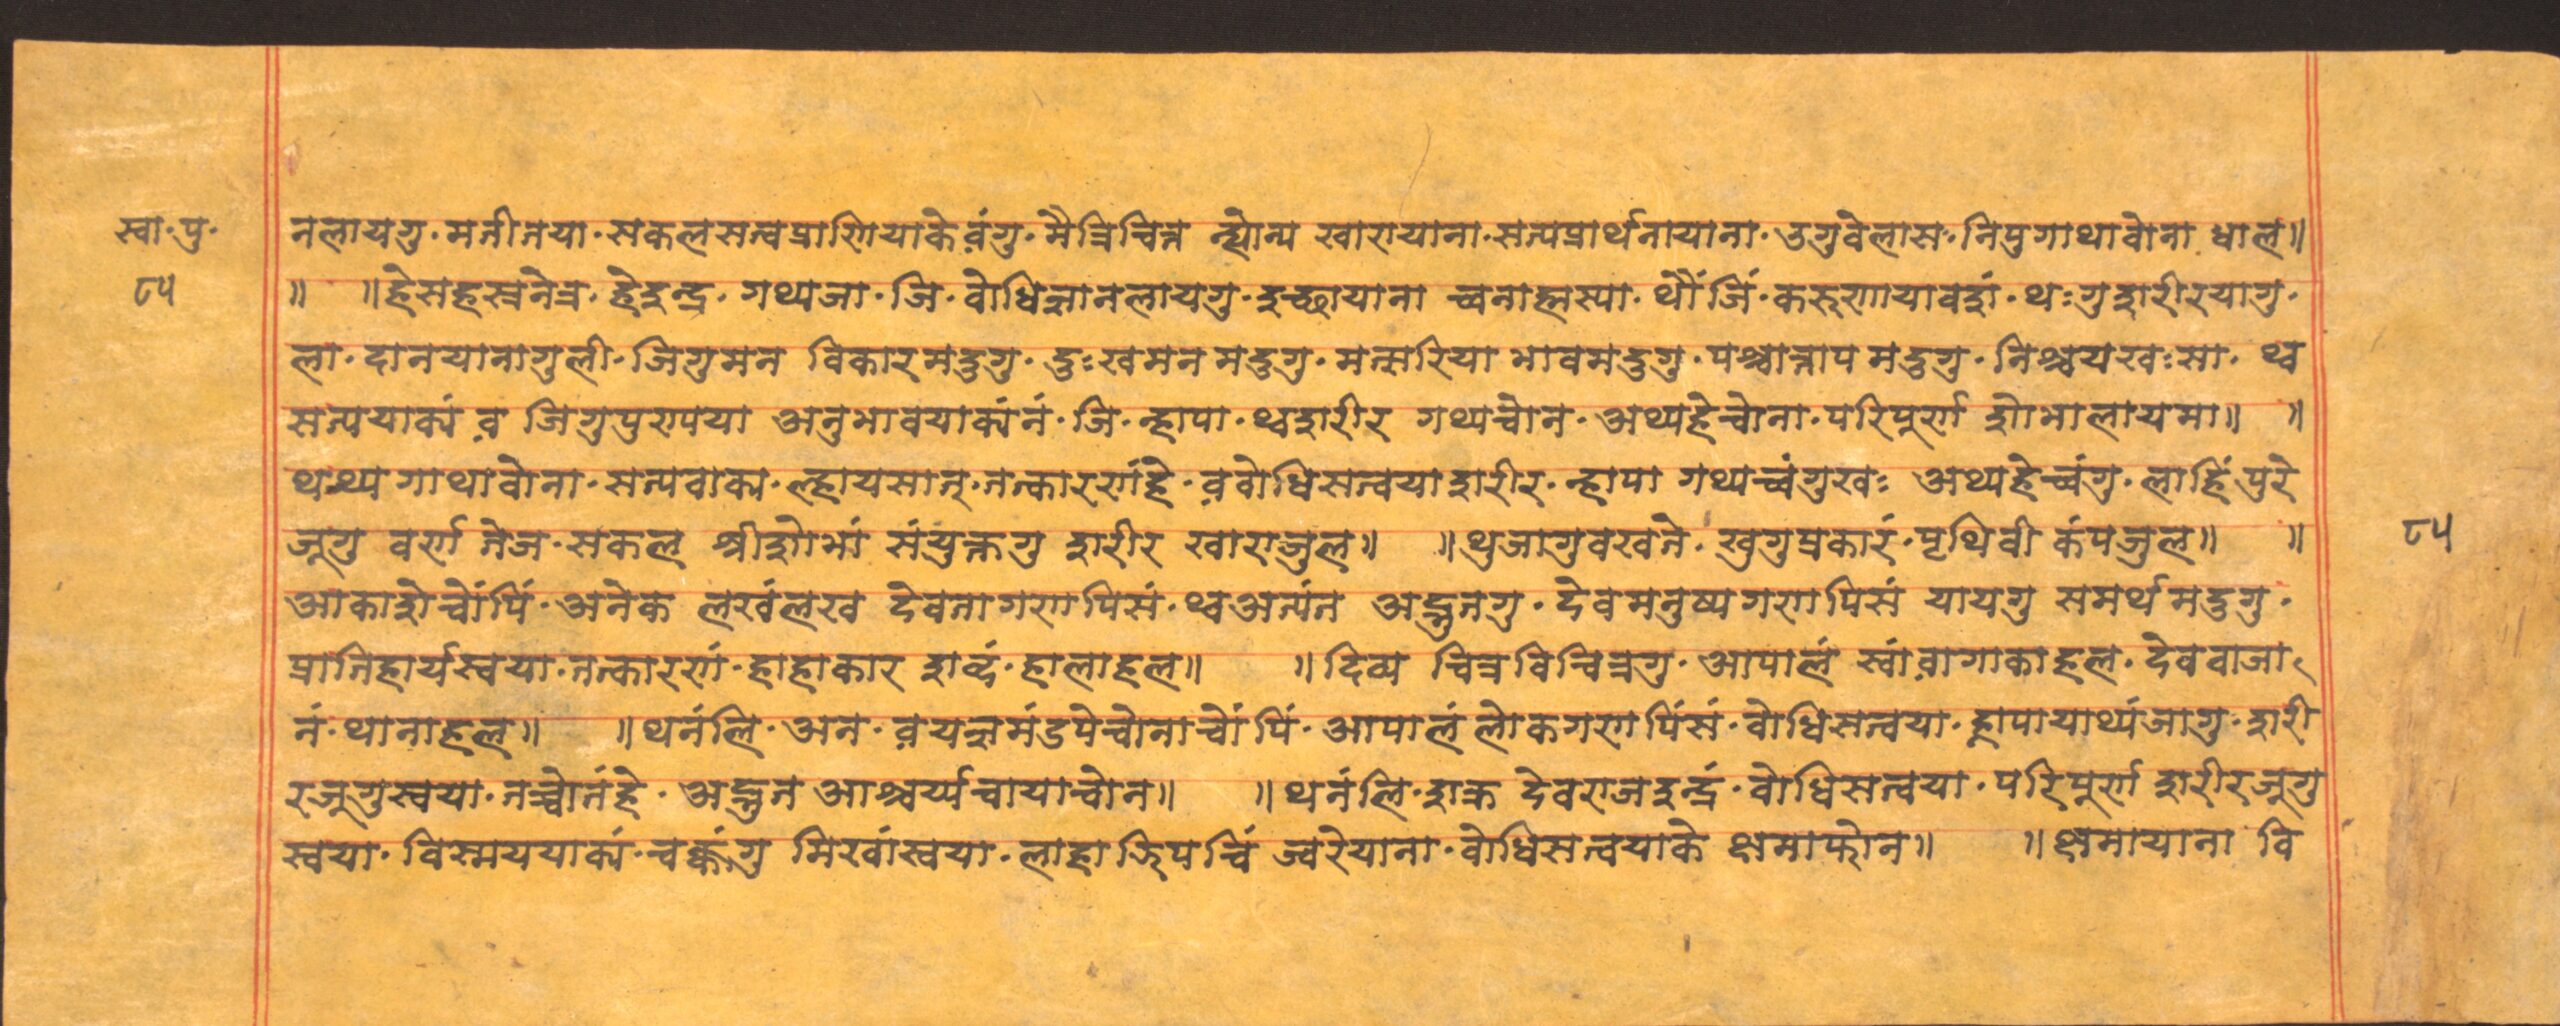 स्वा॰पु॰
८५
नलायगु॰मतीतया॰सकलसत्वप्राणियाके व़ंगु॰मैत्रिचित्त त्योत्य खारायाना॰सत्यप्रार्थनायाना॰उगुवेलास॰निपुगाथावोना धाल॥
॥ ॥हेसहस्रनेत्र॰हेइन्द्र॰गथ्यजा॰जि॰वोधिज्ञानलायगु॰इच्छायाना च्वनाह्मस्या॰थौंजिं॰करुणायावशं॰थःगुशरीरयागु॰
ला॰दानयानागुली॰जिगुमन विकारमदुगु॰दुःखमन मदुगु॰मत्सरिया भावमदुगु॰पश्चात्ताप मदुगु॰निश्चयखःसा॰थ्व
सत्ययाक्यं व़ जिगुपुण्यया अनुभावयाक्यंनं॰जि॰न्हापा॰थ्वशरीर गथ्यच्वोन॰अथ्यहेच्वोना॰परिपूर्ण शोभालायमा॥ ॥
थथ्य गाथावोना॰सत्यवाक्य॰ल्हायसात्॰तत्कारणंहे॰व़वोधिसत्वयाशरीर॰न्हापा गथ्यच्वंगुखः अथ्यहेच्वंगु॰लाहिं पुरे
जूगु वर्ण तेज॰सकल श्रीशोभां संयुक्तगु शरीर खाराजुल॥ ॥थुजागुवखते॰खुगुप्रकारं॰पृथिवी कंपजुल॥ ॥
८५
आकाशेच्वोंपिं॰अनेक लखंलख देवतागणपिसं॰थ्वअत्यंत अद्भुतगु॰देवमनुष्यगणपिसं यायगु समर्थमदुगु॰
प्रातिहार्यस्वया॰तत्कारणं॰हाहाकार शब्दं॰हालाहल॥ ॥दिव्य चित्रविचित्रगु॰आपालं स्वांव़ागाकाहल॰देववाजा
नं॰थानाहल॥ ॥थनंलि॰अन॰व़यज्ञमंडपेच्वोनाच्वोंपिं॰आपालं लोकगणपिंसं॰वोधिसत्वया॰ह्नापायाथ्यंजागु॰शरी
रजूगुस्वया॰तच्वोतंहे॰अद्भुत आश्चर्य्यचायाच्वोन॥ ॥थनंलि॰शक्र देवराजइन्द्रं॰वोधिसत्वया॰परिपूर्ण शरीरजूगु
स्वया॰विस्मययाक्यं॰चक्कंगु मिखांस्वया॰लाहाज़िपचिं ज्वरेयाना॰वोधिसत्वयाके क्षमाफोन॥ ॥क्षमायाना वि